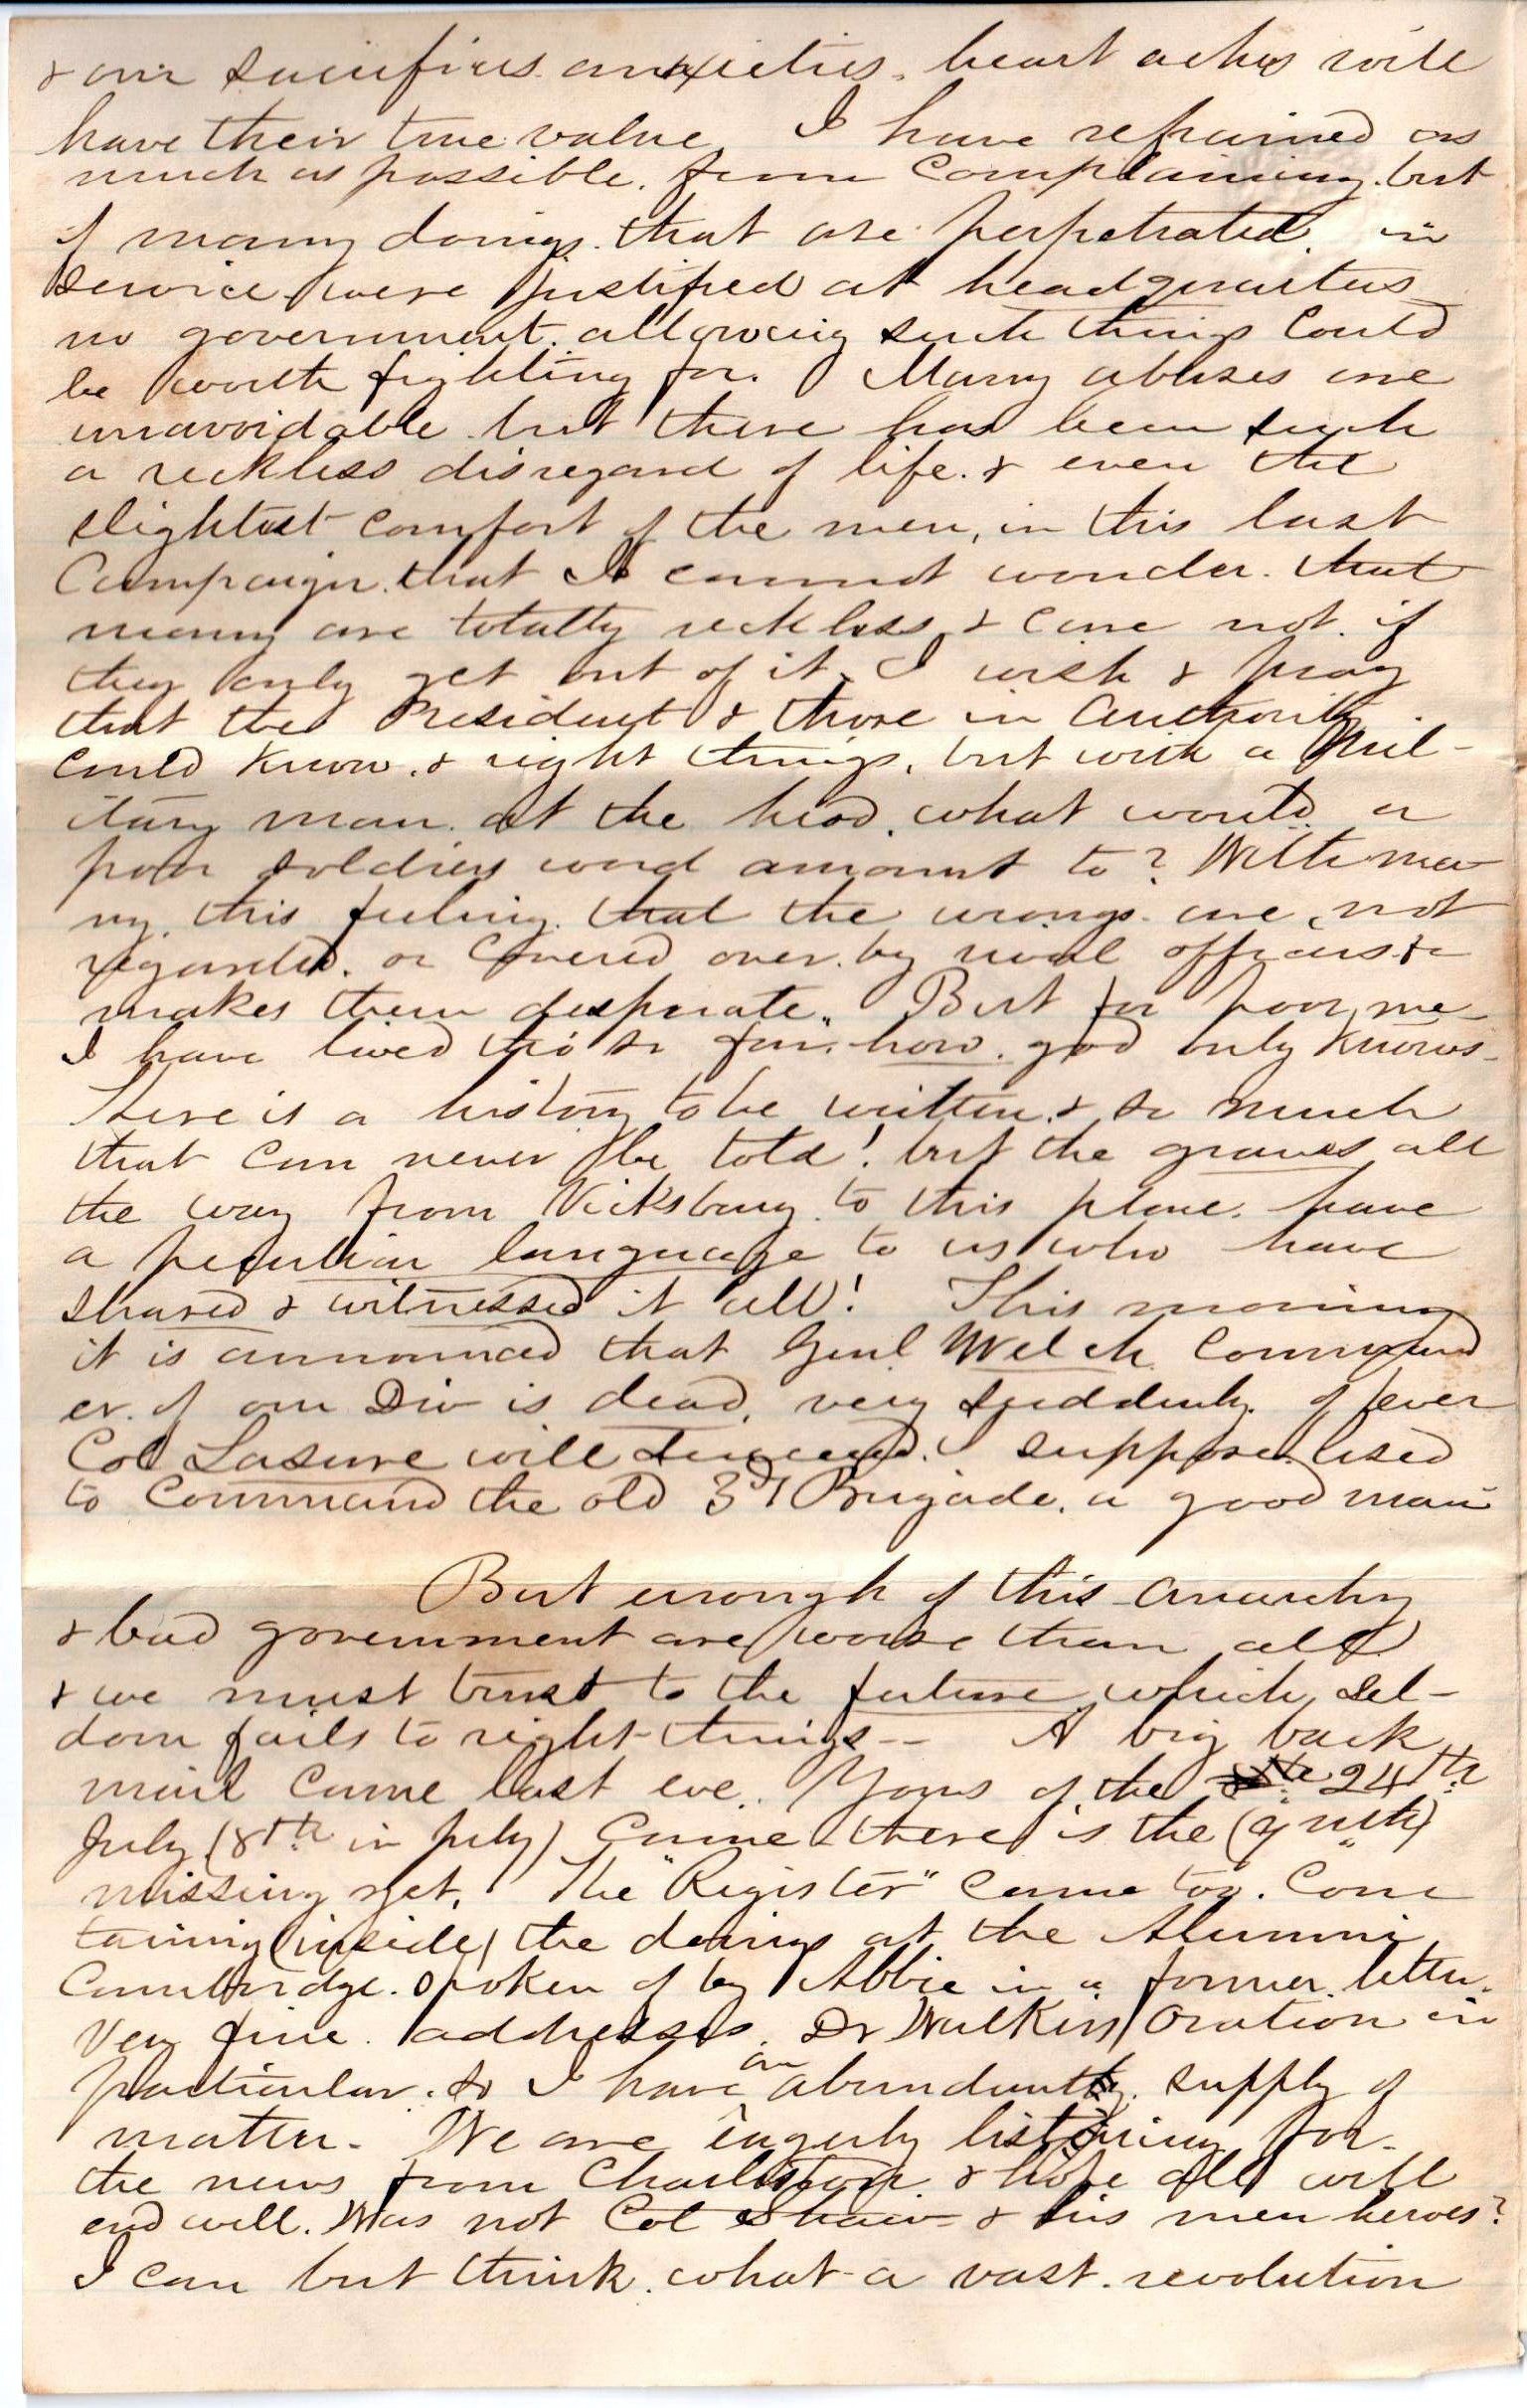 & our sacrifices anxieties, heart aches will
have their true value I have refrained as
much as possible. from complaining. but
if many doings. that are perpetrated in
service were justified at headquarters
no government. allowing such things could
be worth fighting for. Many abuses are
unavoidable but there has been such
a reckless disregard of life. & even the
slightest comfort of the men, in this last
Campaign. that I cannot wonder. that
many are totally reckless & care not. if
they only get out of it. I wish & pray
that the President & those in Authority.
could know. & right things, but with a Mil-
itary man. at the head. what would a
poor soldiers word amount to? With ma-
ny. this feeling. that the wrongs. are not
regarded. or covered over. by rival officers &c
makes them desperate. But for poor me
I have lived tho so far. how. god only knows-
There is a history to be written. & so much
that can never be told! but the graves all
the way from Vicksburg to this place. have
a peculiar language to us who have
shared & witnessed it all! This morning
it is announced that Genl Welch Command
er. of our Div is dead, very suddenly. of fever
Col Lasure will succeed. I suppose. used
to Command the old 3d Brigade. a good man
But enough of this Anarchy
& bad government are worse than all
& we must trust to the future which, sel-
dom fails to right things -- A big back
mail came last eve. Yours of the 24th
July (8th in July) Came there is the (7 ruth)
missing yet. The "Register" came too. Con
taining (inside) the doings at the Alumni
Cambridge. spoken of by Abbie in a former. letter.
Very fine. addresses. Dr Walkers Oration in
particular. So I have an abundant supply of
matter. We are eagerly listening for.
the news from Charleston. & hope all will
end well. Was not Col Shaw & his men heroes?
I can but think. what a vast. revolution